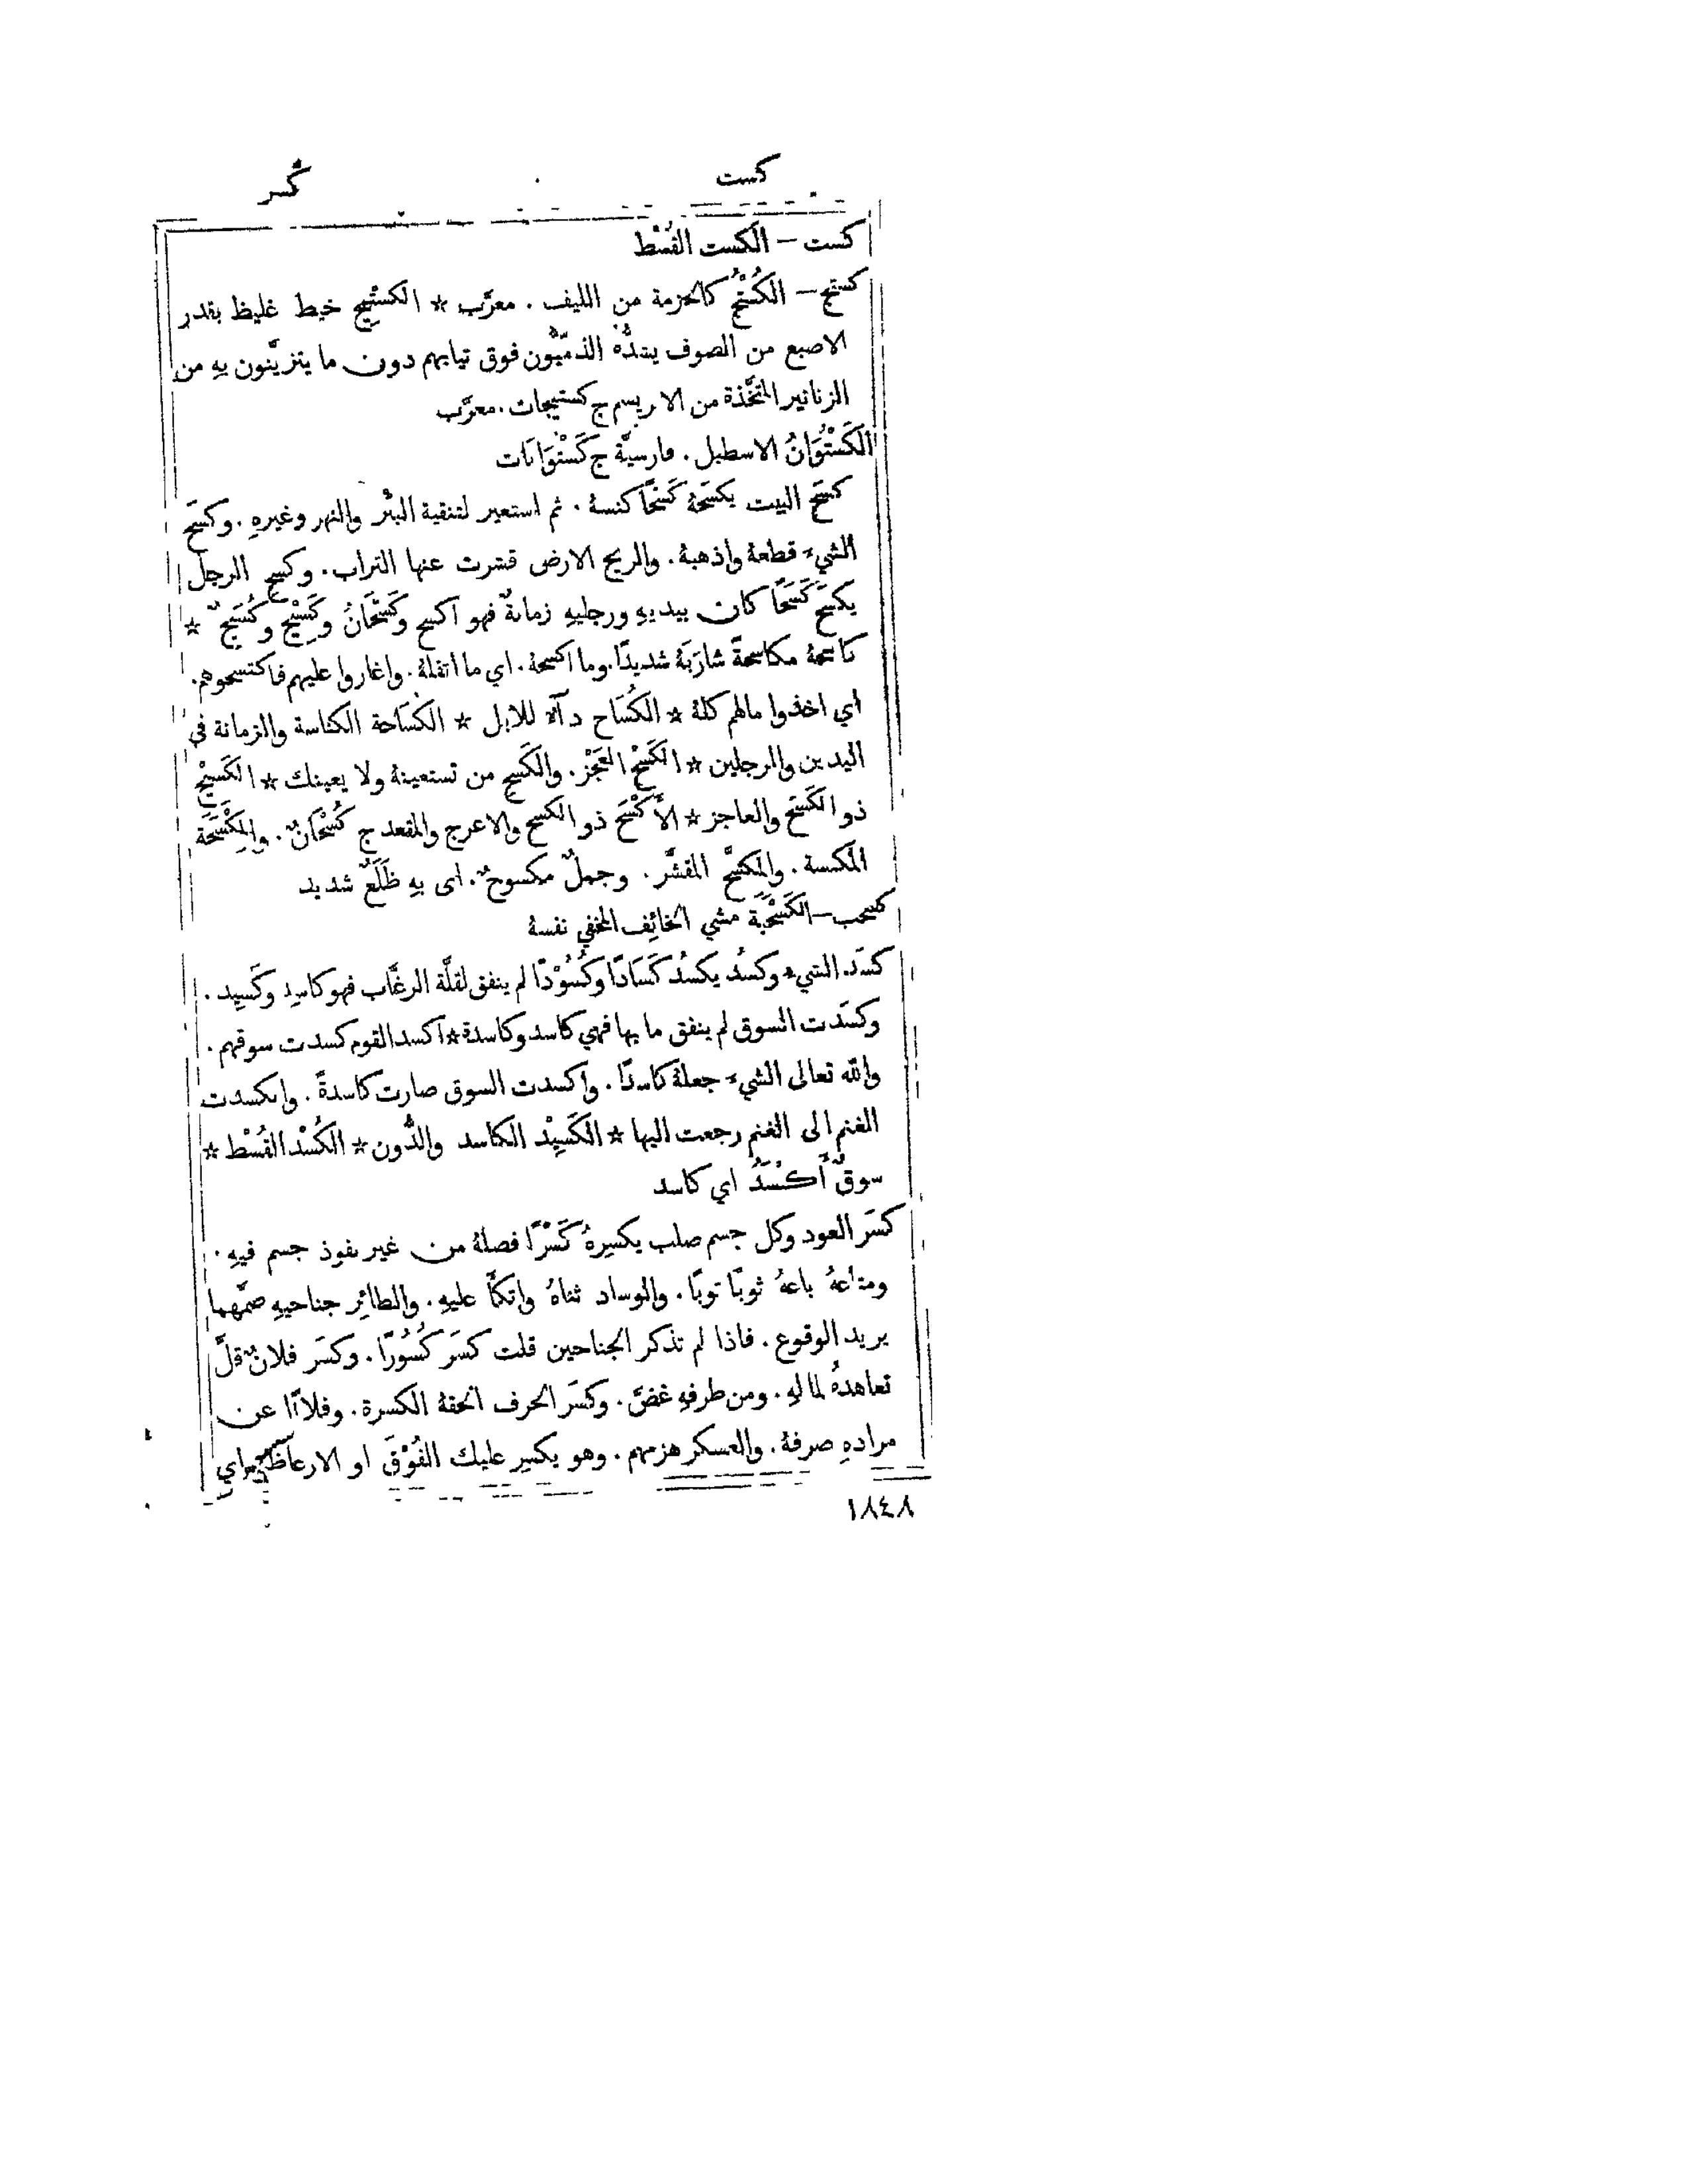 كست
كسر
كست — الكست القُسْط
كستج — الكُسْتُج كالحزمة من الليف . معرَّب ☆ الكُسْتِيج خيط غليظ بقدر
الاصبع من الصوف يشدُّهُ الذمّيُّون فوق ثيابهم دون ما يتزيَّنون بهِ من
الزنانير المتَّخذة من الابريسم ج كستيجات . معرَّب
الكَسْتُوَانُ الاسطبل . فارسيَّة ج كَسْتُوَانَات
كسَح البيت يكسَحهُ كَسْحًا كنسهُ . ثم استعير لتنقية البئر والنهر وغيرهِ . وكسَح
الشيءَ قطعهُ واذهبهُ . والريح الارض قشرت عنها التراب . وكسِح الرجل
يكسَح كَسَحًا كان بيديهِ ورجليهِ زمانةٌ فهو اكسح وكَسْحَانُ وكَسِيْحٌ وكُسَيْحٌ ☆
كاسحهُ مكاسحةً شارَبَهُ شديدًا . وما اكسحهُ . اي ما اثقلهُ . واغاروا عليهم فاكتسحوهم .
اي اخذوا مالهم كلهُ ☆ الكُسَاح دآءٌ للابل ☆ الكُسَاحة الكناسة والزمانة في
اليدين والرجلين ☆ الكَسَحُ العَجْز . والكَسِح من تستعينهُ ولا يعينك ☆ الكَسِيْح
ذو الكَسَح والعاجز ☆ الأَكْسَح ذو الكسح والاعرج والمقعد ج كُسْحَانٌ . والمِكْسَحَة
المكنسة . والمكسَّح المقشَّر . وجملٌ مكسوحٌ . اى بهِ ظَلَعٌ شديد
كسحب — الكَسْحَبَة مشي الخائِف المخفي نفسهُ
كسَد الشيءُ وكسُد يكسُد كَسَادًا وكُسُوْدًا لم ينفق لقلَّة الرغَّاب فهو كاسِد وكَسِيد .
وكسَدت السوق لم ينفق ما بها فهي كاسد وكاسدة ☆ اكسد القوم كسدت سوقهم .
والله تعالى الشيءَ جعلهُ كاسدًا . واكسدت السوق صارت كاسدةً . وانكسدت
الغنم الى الغنم رجعت اليها ☆ الكَسِيْد الكاسد والدُّون ☆ الكُسْد القُسْط ☆
سوقٌ أَكْسَدُ اي كاسد
كسَر العود وكل جسم صلب يكسِرهُ كَسْرًا فصلهُ من غير نفوذ جسم فيهِ .
ومتاعهُ باعهُ ثوبًا ثوبًا . والوساد ثناهُ واتكأَ عليهِ . والطائِر جناحيهِ ضمَّهما
يريد الوقوع . فاذا لم تذكر الجناحين قلت كسَر كُسُوْرًا . وكسَر فلانٌ قلَّ
تعاهدهُ لمالهِ . ومن طرفهِ غضَّ . وكسَر الحرف الحقهُ الكسرة . وفلانًا عن
مرادهِ صرفهُ . والعسكر هزمهم . وهو يكسِر عليك الفُوْقَ او الارعاظ اي
١٨٤٨